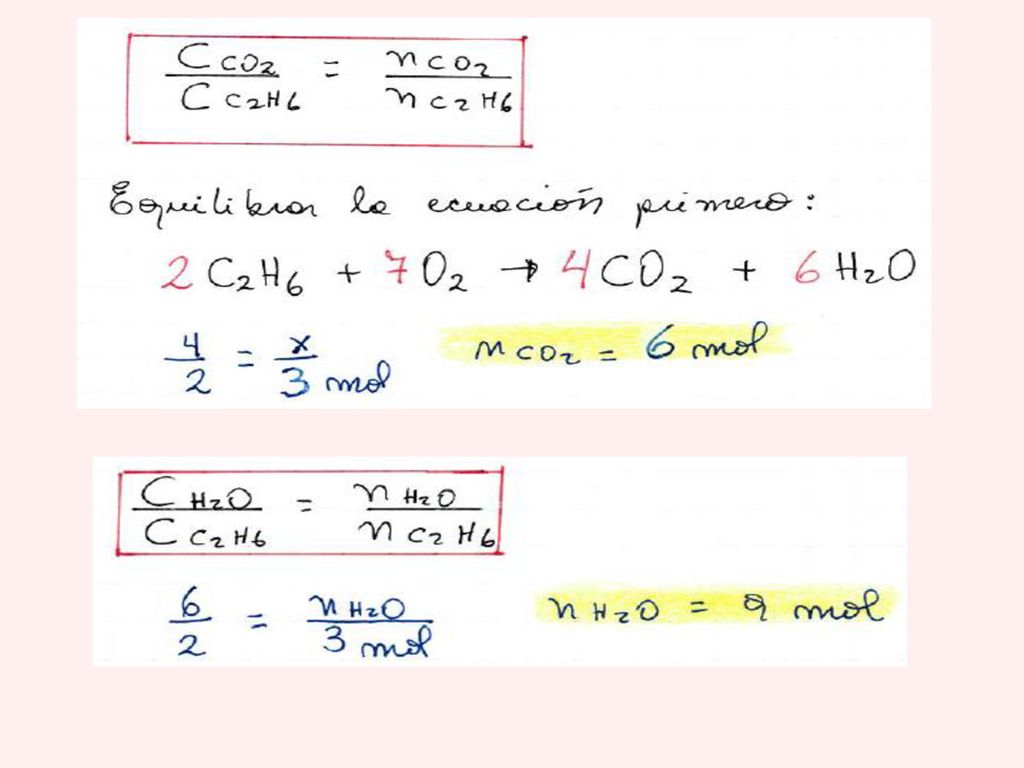 C CO2 / C C2H6 = n CO2 / n C2H6
Equilibrar la ecuación primero:
2 C2H6 + 7 O2 → 4 CO2 + 6 H2O
4/2 = x/3 mol    n CO2 = 6 mol
C H2O / C C2H6 = n H2O / n C2H6
6/2 = n H2O / 3 mol    n H2O = 9 mol